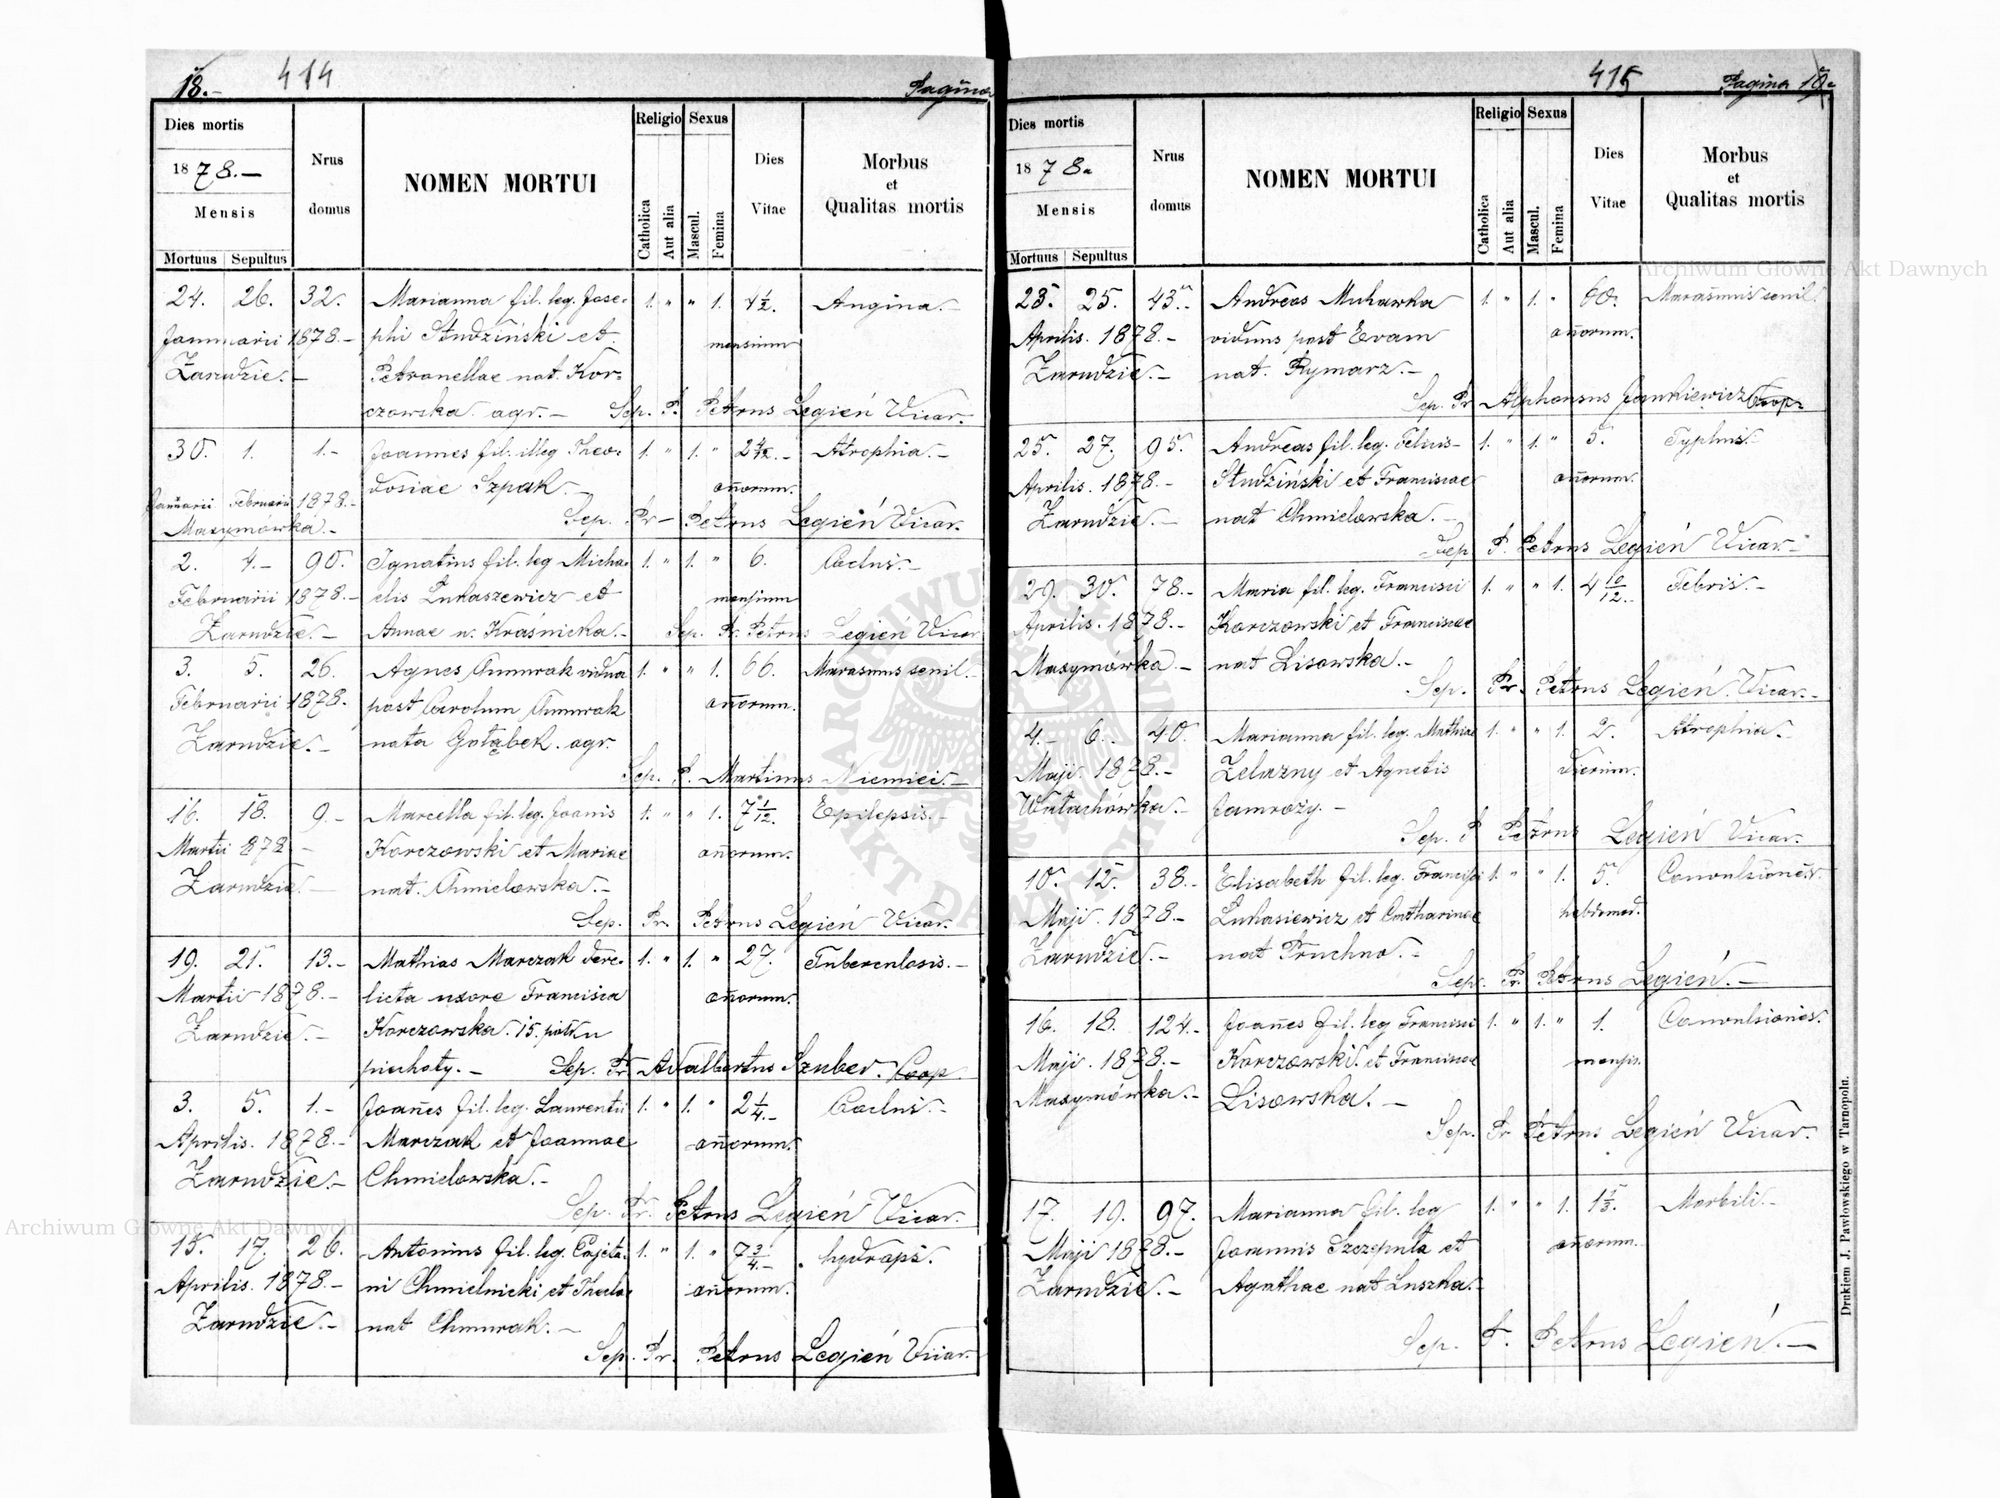 18.- 414 Pagina
Dies mortis
1878.-
Mensis
Mortuus Sepultus
Nrus domus
NOMEN MORTUI
Religio
Catholica
Aut alia
Sexus
Mascul.
Femina
Dies Vitae
Morbus et Qualitas mortis
24. 26. 32. Marianna fil. leg. Jose- 1. " " 1. 4½. Angina.-
Januarii 1878.- phi Studziński et mensium
Zarudzie.- Petronellae nat. Kor-
czowska agr.- Sep. P. Petrus Legień Vicar.
30. 1. 1.- Joannes fil. illeg Theo- 1. " 1. " Atrophia.-
dosiae Szpak.- añorum.
Januarii Februarii 1878.-
Masymówka.- Sep. Pr- Petrus Legień Vicar.
2. 4.- 90. Ignatius fil. leg Micha- 1. " 1. " 6.
Februarii 1878.- elis Łukaszewicz et mensium
Zarudzie.- Annae n. Kraśnicka.- Sep. Pr. Petrus Legień Vicar
3. 5. 26. Agnes Chmurak vidua 1. " " 1. 66. Marasmus senil.-
Februarii 1878. post Carolum Chmurak añorum.
Zarudzie.- nata Gołąbek. agr.
Sep. P. Martinus Niemiec.-
16. 18. 9.- Marcella fil. leg. Joanis 1. " " 1. 7 1/12. Epilepsis.-
Martii 878 - Korczowski et Mariae añorum.
Zarudzie.- nat. Chmielowska.-
Sep. Pr. Petrus Legień Vicar.
19. 21. 13.- Mathias Marczak dere- 1. " 1. " 27. Tuberculosis.-
Martii 1878.- licta uxore Francisca añorum.
Zarudzie.- Korczowska. 15. pułku
piechoty.- Sep. Pr Adalbertus Szuber. Coop.
3. 5. 1.- Joañes fil. leg. Laurentii 1. " 1. " 2¼.-
Aprilis. 1878.- Marczak et Joannae añorum.
Zarudzie.- Chmielowska.-
Sep. Pr. Petrus Legień Vicar.
15. 17. 26. Antonius fil. leg. Cajeta- 1. " 1. " 7¾.- hydraps.
Aprilis. 1878.- ni Chmielnicki et Theclae añorum.
Zarudzie.- nat Chmurak.-
Sep. Pr. Petrus Legień Vicar.
415 Pagina 19.
Dies mortis
1878.
Mensis
Mortuus Sepultus
Nrus domus
NOMEN MORTUI
Religio
Catholica
Aut alia
Sexus
Mascul.
Femina
Dies Vitae
Morbus et Qualitas mortis
23. 25. 43. Andreas Muharka 1. " 1. " 60. Marasmus senil.
Aprilis. 1878.- viduus post Evam añorum.
Zarudzie.- nat. Rymarz.-
Sep. Pr Alphonsus Jankiewicz Coop.
25. 27. 95. Andreas fil. leg. Felicis- 1. " 1. " 5. Typhus.-
Aprilis. 1878.- Studziński et Franciscae añorum.
Zarudzie.- nat Chmielowska.-
Sep P. Petrus Legień Vicar.-
29. 30. 78.- Maria fil. leg. Francisci 1. " " 1. 4 10/12.- Febris.-
Aprilis. 1878.- Korczowski et Franciscae
Masymówka.- nat Lisowska.-
Sep. Pr. Petrus Legień. Vicar.-
4.- 6.. 40. Marianna fil. leg. Mathiae 1. " " 1. 2. Atrophia.-
Maji. 1878.- Żelazny et Agnetis dierum.
Wałachówka.- Jamroży.-
Sep. P Petrus Legień Vicar.
10. 12. 38.- Elisabeth fil. leg. Francisci 1. " " 1. 5. Convulsiones.
Maji. 1878.- Łukasiewicz et Catharinae hebdomad.
Zarudzie.- nat Pruchno.-
Sep. Pr. Petrus Legień.-
16. 18. 124.- Joañes fil. leg Francisci 1. " 1. " 1. Convulsiones.
Maji. 1878.- Korczowski. et Franciscae mensis.
Masymówka.- Lisowska.-
Sep. Pr Petrus Legień Vicar.
17. 19. 97. Marianna fil. leg 1. " " 1. Morbili.-
Maji 1878.- Joannis Szczepula et añorum.
Zarudzie.- Agathae nat Luszka.-
Sep. P. Petrus Legień.-
Drukiem J. Pawłowskiego w Tarnopolu.
Archiwum Główne Akt Dawnych
Archiwum Główne Akt Dawnych
ARCHIWUM GŁÓWNE AKT DAWNYCH